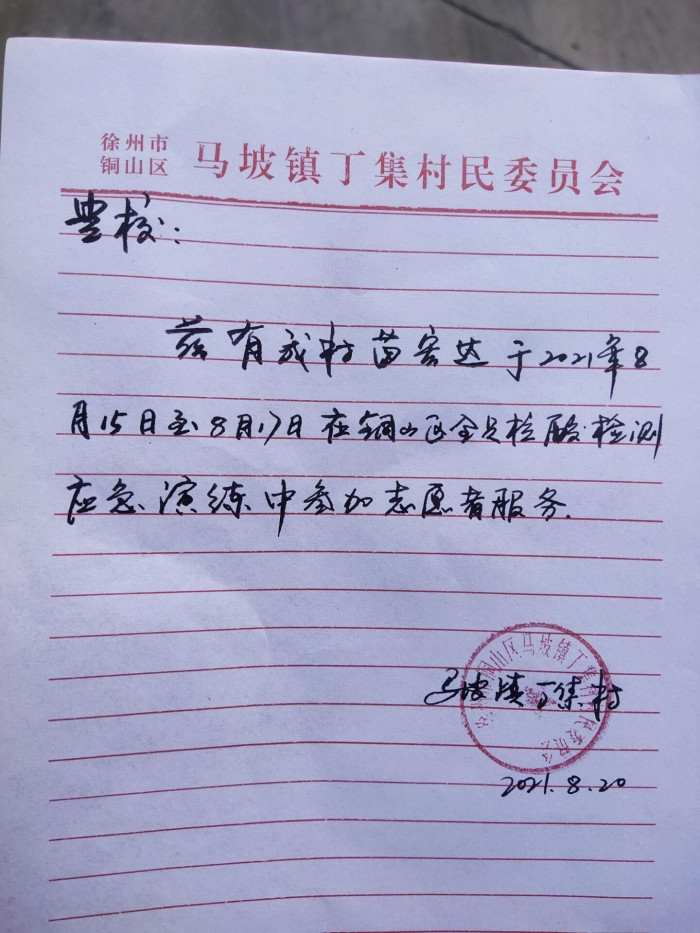 徐州市
铜山区
马坡镇丁集村民委员会
贵校:
兹有我村苗宏达于2021年8
月15日至8月17日在铜山区全员核酸检测
应急演练中参加志愿者服务.
铜山区马坡镇丁集村民委员会
马坡镇丁集村
2021.8.20